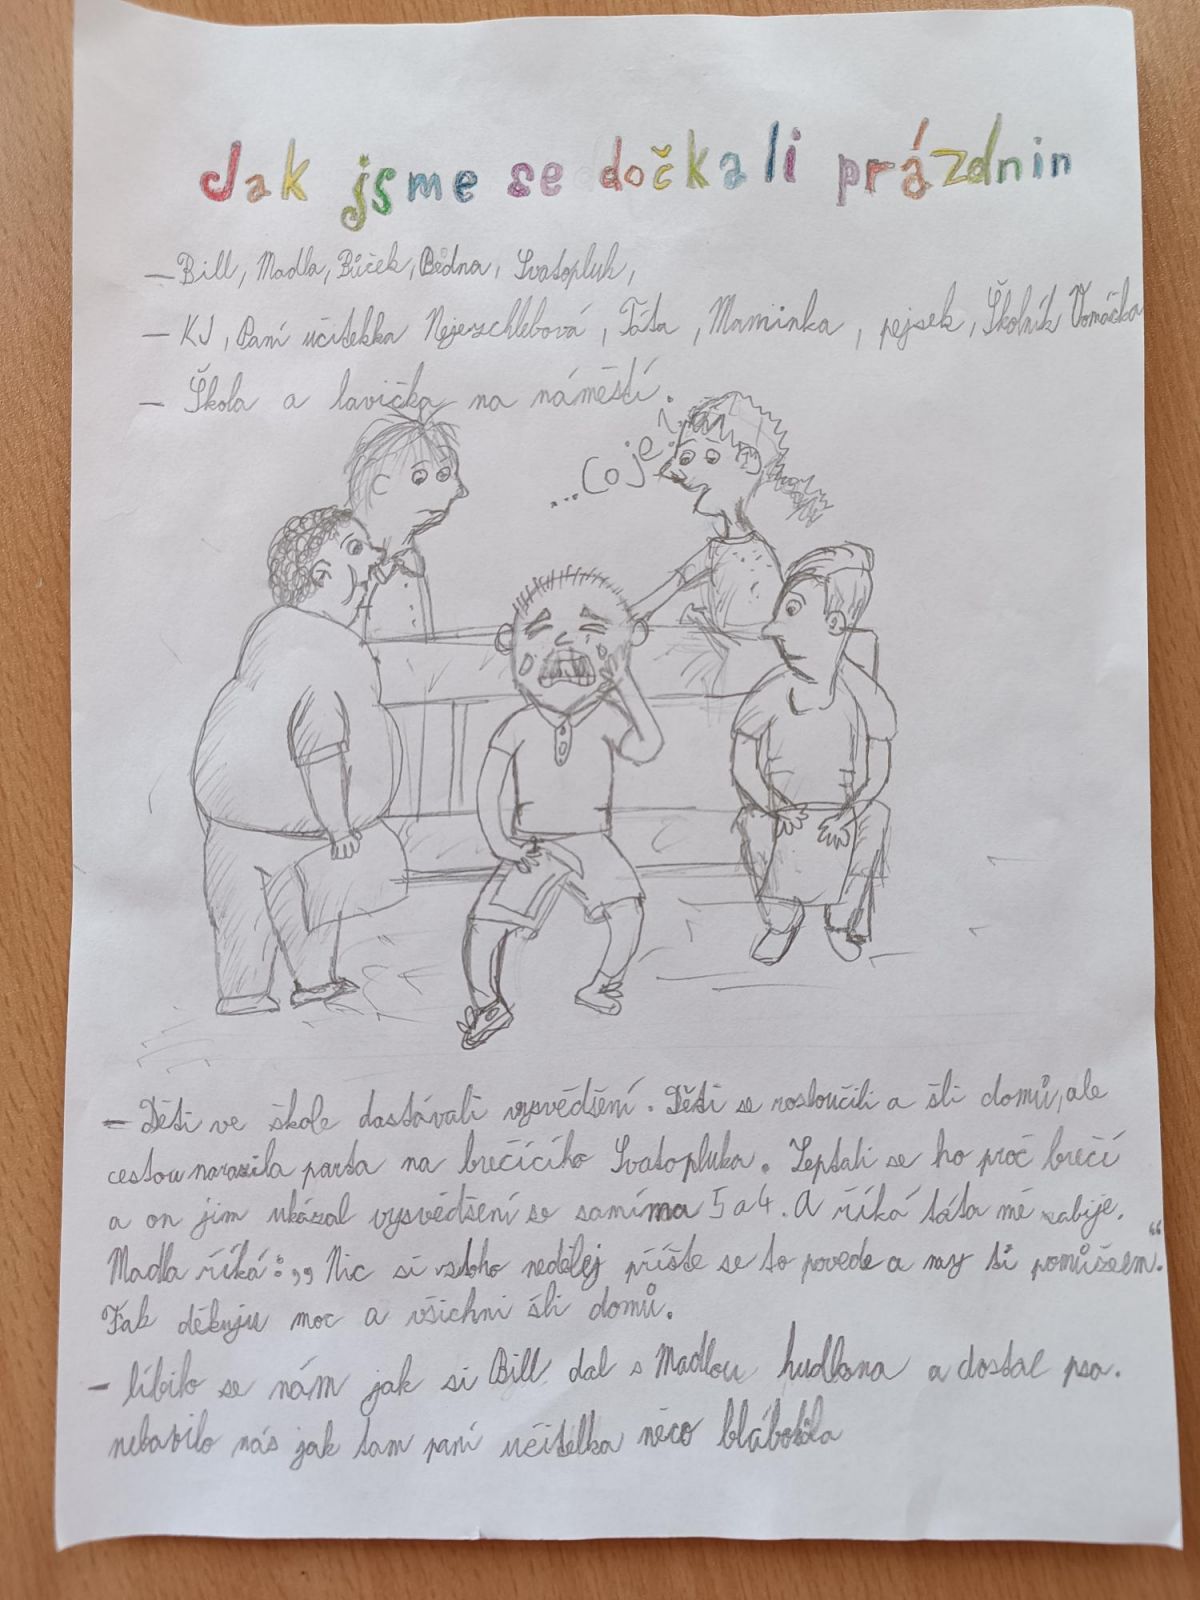 Jak jsme se dočkali prázdnin
— Bill, Madla, Bůček, Bedna, Svatopluk,
— KJ, Paní učitekka Nejezchlebová, Táta, Maminka, pejsek, Školník Vomáčka
— Škola a lavička na náměstí.
...Co je?
— Děti ve škole dostávali vysvědšení. Děti se rosloučili a šli domů, ale
cestou narazila parta na brečícího Svatopluka. Zeptali se ho proč brečí
a on jim ukázal vysvědšení se samíma 5 a 4. A říká táta mě zabije.
Madla říká: „ Nic si stoho nedělej příště se to povede a my ti pomůžeem.“
Tak děkuju moc a všichni šli domů.
— líbilo se nám jak si Bill dal s Madlou hudlana a dostal psa.
nebavilo nás jak tam paní učitelka něco blábolila